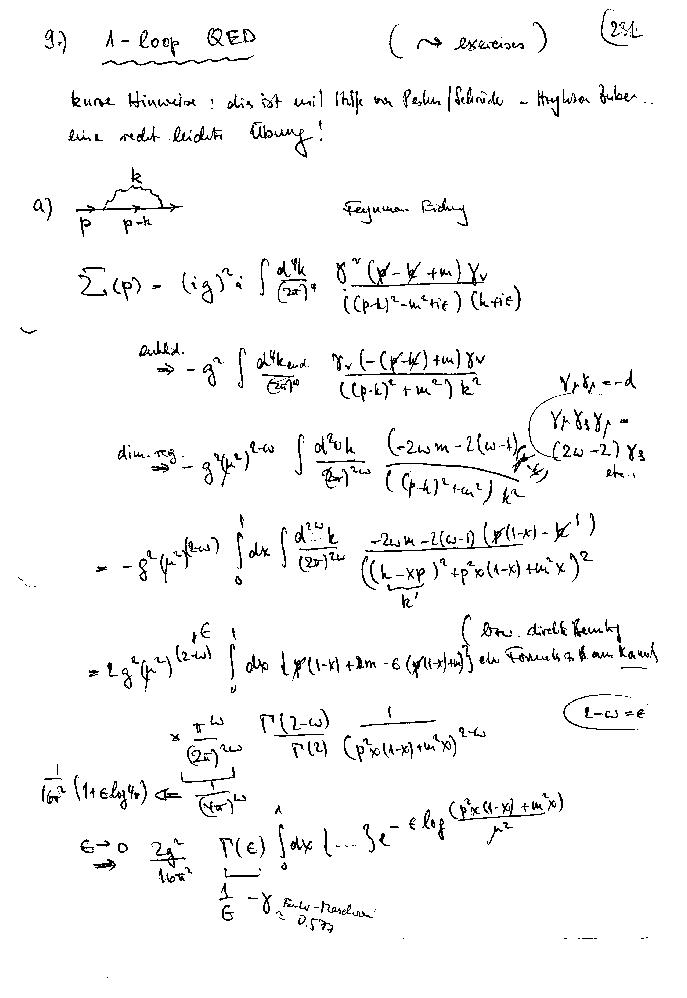 9.) 1-loop QED (⇝ exercises) (231
kurze Hinweise : dies ist mit Hilfe von Peskin/Schröder - Itzykson Zuber ..
eine recht leichte Übung!
k
a) p p-k Feynman Eichung
Σ(p) = (ig)² i ∫ d⁴k/(2π)⁴ γ^ν (p̸ - k̸ + m) γ_ν / ((p-k)² - m² + iε) (k + iε)
euklid. ⇒ - g² ∫ d⁴k_eucl./(2π)⁴ γ_ν (-(p̸-k̸) + m) γ_ν / ((p-k)² + m²) k²
γ_μ γ_μ = -d
γ_μ γ_3 γ_μ =
(2ω-2) γ_3
etc..
dim. reg. ⇒ - g² (μ²)^{2-ω} ∫ d^{2ω}k/(2π)^{2ω} (-2ωm - 2(ω-1)(p̸-k̸)) / ((p-k)² + m²) k²
= - g² (μ²)^{(2-ω)} ∫₀¹ dx ∫ d^{2ω}k/(2π)^{2ω} -2ωm - 2(ω-1) (p̸(1-x) - k̸') / ((k - xp)² + p²x(1-x) + m²x)²
k'
( bzw. direkte
= 2g² (μ²)^{(2-ω)} ε ∫₀¹ dx {p̸(1-x) + 2m - ε (p̸(1-x) + m)}
× π^ω/(2π)^{2ω} Γ(2-ω)/Γ(2) 1/(p²x(1-x) + m²x)^{2-ω} 2-ω = ε
1/16π² (1 + ε log 4π) ⇐ 1/(4π)^ω
ε → 0 ⇒ 2g²/16π² Γ(ε) ∫₀¹ dx {...} e^{- ε log (p²x(1-x) + m²x)/μ²}
1/ε - γ Euler-Mascheroni
≈ 0.577